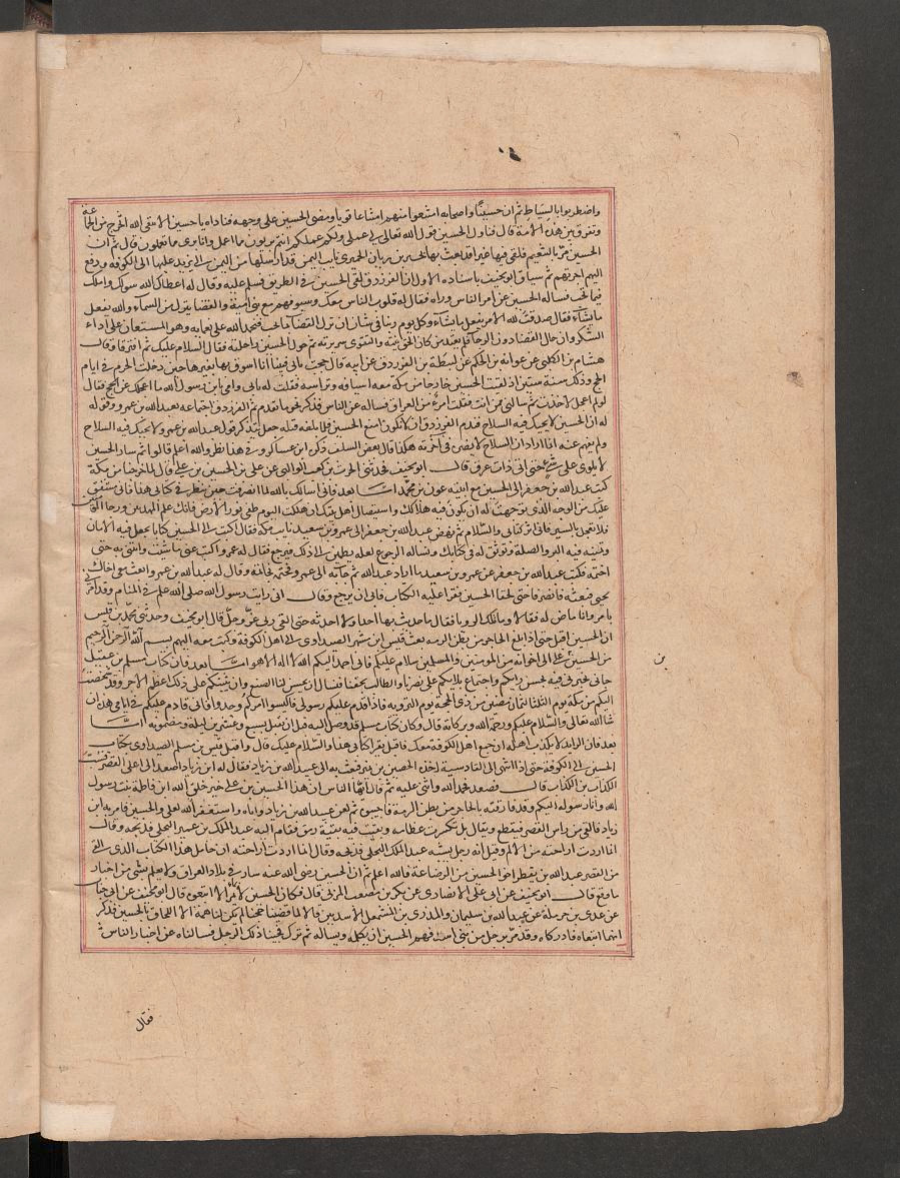 واضطربوا بالسياط ثم ان حسينا واصحابه امتنعوا منهم امتناعا قويا ومضى الحسين على وجهه فناداه يا حسين الا تتقى الله اتخرج من الجماعة
وتفرق بين هذه الامة قال فتاول الحسين قول الله تعالى لى عملى ولكم عملكم انتم بريون مما اعمل وانا برى مما تعملون قال ثم ان
الحسين مر بالتنعيم فلقى بها عيرا قد بعث بها بحير بن ريسان الحميرى نايب اليمن قد ارسلها من اليمن الى يزيد عليها الى الكوفة ودفع
اليهم اجرتهم ثم ساق ابو مخنف باسناده الاول ان الفرزدق لقى الحسين فى الطريق فسلم عليه وقال له اعطاك الله سولك واملك
فيما تحب فساله الحسين عن امر الناس وراه فقال له قلوب الناس معك وسيوفهم مع بنى امية والقضا ينزل من السماء والله يفعل
ما يشاء فقال صدقت لله الامر يفعل ما يشاء وكل يوم ربنا فى شان ان نزل القضا بما نحب فنحمد الله على نعمايه وهو المستعان على اداء
الشكر وان حال القضا دون الرجا فلم يعتد من كان الحق نيته والتقوى سريرته ثم حرك الحسين راحلته فقال السلام عليك ثم افترقا وقال
هشام بن الكلبى عن عوانة بن الحكم عن لبطة بن الفرزدق عن ابيه قال حججت بامى فبينا انا اسوق بها بعيرها حين دخلت الحرم فى ايام
الحج وذلك سنة ستين اذ لقيت الحسين خارجا من مكة معه اسيافه وتراسه فقلت له بابى وامى يا بن رسول الله ما اعجلك عن الحج فقال
لو لم اعجل لاخذت ثم سالنى ممن انت فقلت امرء من العراق فساله عن الناس فذكر نحو ما تقدم ثم الفرزدق اجتماعه بعبد الله بن عمرو وقوله
له ان الحسين لا يحيك فيه السلاح فندم الفرزدق ان لا يكون اتبع الحسين فلما بلغه قتله جعل يتذكر قول عبد الله بن عمرو لا يحيك فيه السلاح
ولم يفهم عنه انما اراد ان السلاح لا يضره فى اخرته هكذا قال بعض السلف ذكره ابن عساكر وفى هذا نظر والله اعلم قالوا ثم سار الحسين
لا يلوى على شى حتى اتى ذات عرق قال ابو مخنف فحدثنى الحرث بن كعب الوالبى عن على بن الحسين بن على قال لما خرجنا من مكة
كتب عبد الله بن جعفر الى الحسين مع ابنيه عون بن محمد اما بعد فانى اسالك بالله لما انصرفت حين تنظر فى كتابى هذا فانى مشفق
عليك من الوجه الذى توجهت له ان يكون فيه هلاكك واستيصال اهل بيتك ان هلكت اليوم طفى نور الارض فانك علم المهتدين ورجا المومنين
فلا تعجل بالسير فانى اثر كتابى والسلام ثم نهض عبد الله بن جعفر الى عمرو بن سعيد نايب مكة فقال اكتب الى الحسين كتابا تجعل فيه الامان
وتمنيه فيه البر والصلة وتوثق له فى كتابك وتساله الرجوع لعله يطمين الى ذلك فيرجع فقال له عمرو اكتب عنى ما شيت وايتنى به حتى
اختمه فكتب عبد الله بن جعفر عن عمرو بن سعيد ما اراد عبد الله ثم جا به الى عمرو فختمه بخاتمه وقال له عبد الله بن عمرو وابعث معى اخاك
يحيى فبعثه فانصرفا حتى لحقا الحسين فقرا عليه الكتاب فابى ان يرجع وقال انى رايت رسول الله صلى الله علم فى المنام وقد امرنى
بامر وانا ماض له فقالا وما تلك الرويا فقال ما حدثت بها احدا ولا احدثه حتى القى ربى عز وجل قال ابو مخنف وحدثنى محمد بن قيس
ان الحسين اقبل حتى اذا بلغ الحاجر من بطن الرمه بعث قيس بن مسهر الصيداوى الى اهل الكوفة وكتب معه اليهم بسم الله الرحمن الرحيم
من الحسين بن على الى اخوانه من المومنين والمسلمين سلام عليكم فانى احمد اليكم الله الذى لا اله الا هو اما بعد فان كتاب مسلم بن عقيل
جانى يخبرنى فيه بحسن رايكم واجتماع ملايكم على نصرنا والطلب بحقنا فنسال الله ان يحسن لنا الصنيع وان يثيبكم على ذلك اعظم الاجر وقد شخصت
اليكم من مكة يوم الثلثا لثمان مضين من ذى الحجة يوم التروية فاذا قدم عليكم رسولى فاكمشوا امركم وجدوا فانى قادم عليكم فى ايامى هذه ان
شا الله تعالى والسلام عليكم ورحمة الله وبركاته قال وكان كتاب مسلم قد وصل اليه قبل ان يقتل بسبع وعشرين ليلة ومضمونه اما
بعد فان الرايد لا يكذب اهله ان جميع اهل الكوفة معك فاقبل حين تقرا كتابى هذا والسلام عليك قال واقبل قيس بن مسهر الصيداوى بكتاب
الحسين الى الكوفة حتى اذا انتهى الى القادسية اخذه الحصين بن نمير فبعث به الى عبيد الله بن زياد فقال له ابن زياد اصعد الى اعلى القصر فسب
الكذاب بن الكذاب قال فصعد فحمد الله واثنى عليه ثم قال ايها الناس ان هذا الحسين بن على خير خلق الله ابن فاطمة بنت رسول
الله وانا رسوله اليكم وقد فارقته بالحاجر من بطن الرمة فاجيبوه ثم لعن عبيد الله بن زياد واباه واستغفر الله لعلى والحسين فامر به ابن
زياد فالقى من راس القصر فتقطع ويقال بل تكسرت عظامه وبقيت فيه بقية رمق فقام اليه عبد الملك بن عمير البجلى فذبحه وقال
انما اردت اراحته من الالم وقيل انه رجل يشبه عبد الملك البجلى فذبحه وقال انما اردت اراحته ان حامل هذا الكتاب الذى القى
من القصر عبد الله بن بقطر اخو الحسين من الرضاعة فالله اعلم ثم ان الحسين رضى الله عنه سار فى بلاد العراق ولا يعلم بشى من اخبار
ما وقع قال ابو مخنف عن ابى على الانصارى عن بكر بن مصعب المزنى قال فكان الحسين لا يمر الا اتبعوه قال ابو مخنف عن ابى جناب
عن عدى بن حرملة عن عبد الله بن سليمان والمذرى بن المشمعل الاسديين قالا لما قضينا حجنا لم يكن لنا همة الا اللحاق بالحسين فذكر
انهما اتبعاه فادركاه وقد مر برجل من بنى اسد فهم الحسين ان يكلمه ويساله ثم ترك فجينا ذلك الرجل فسالناه عن اخبار الناس
فقال